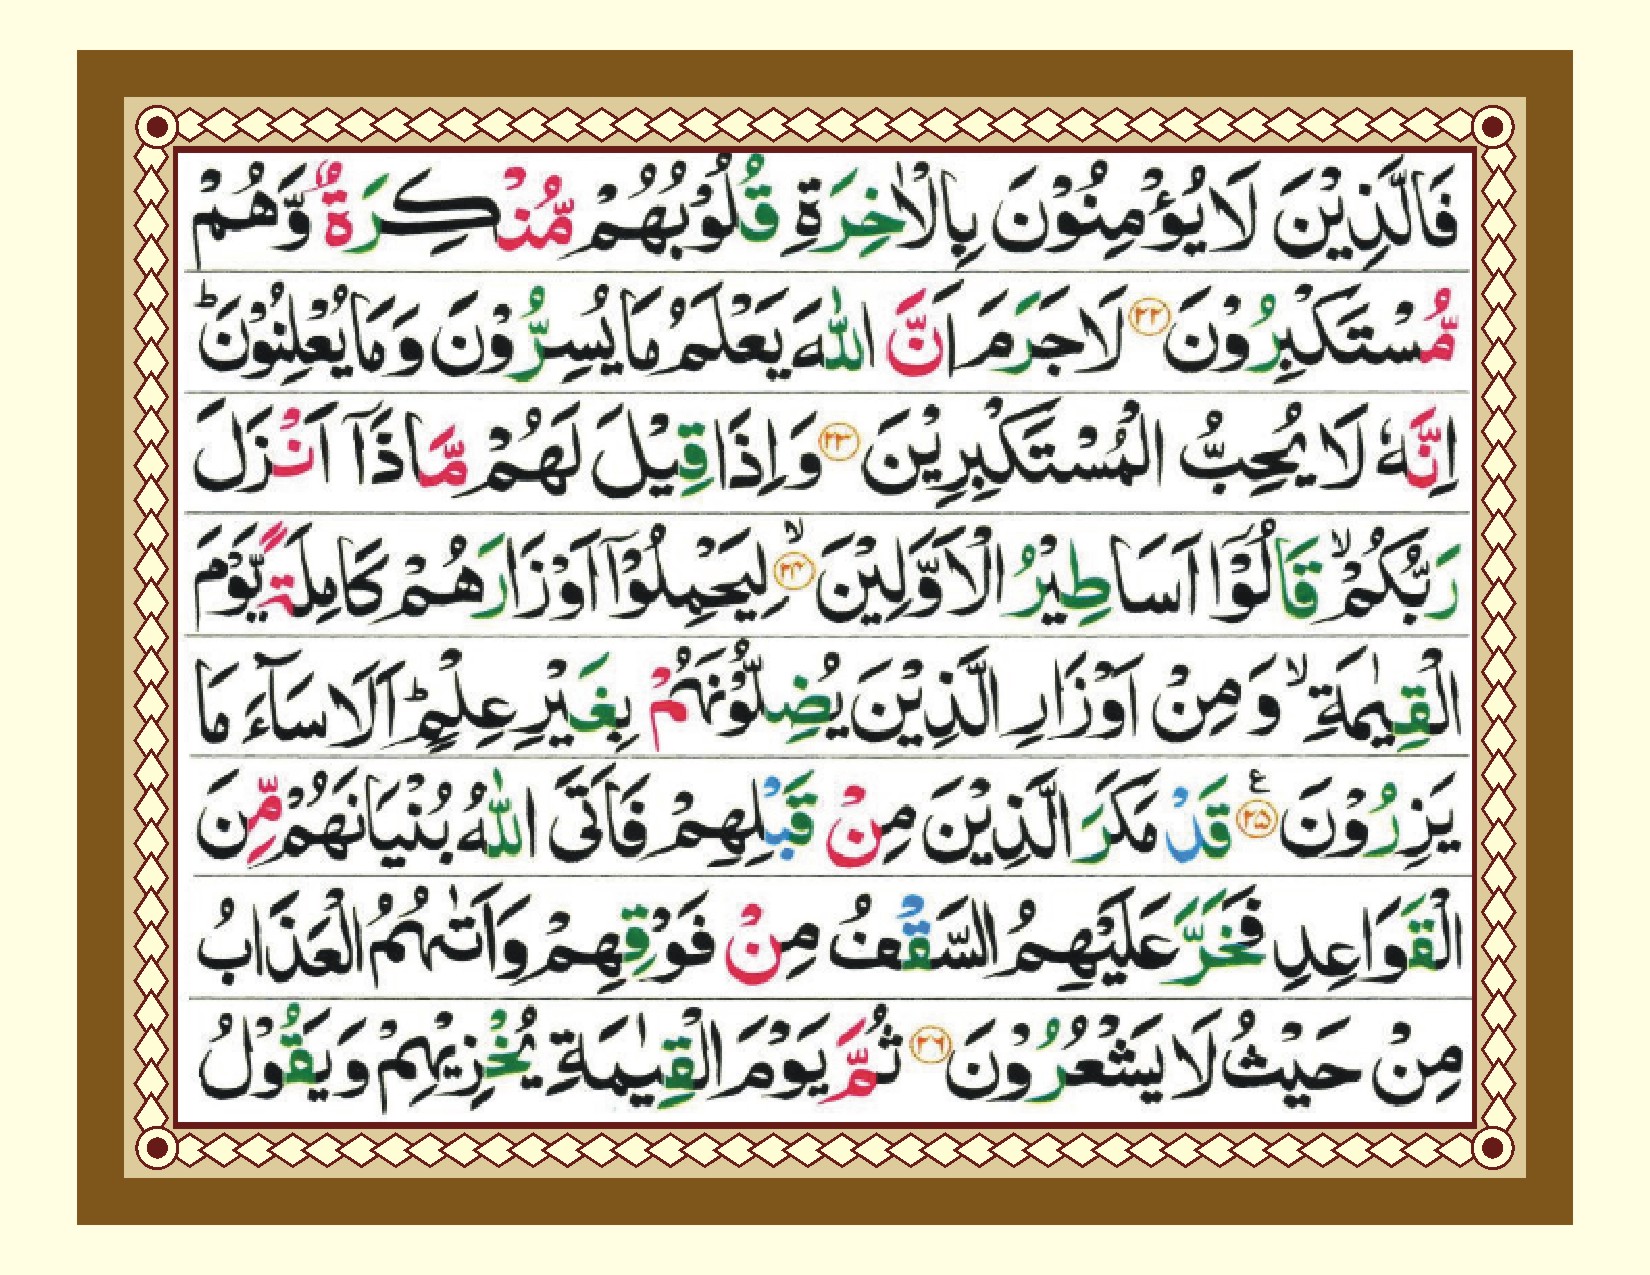 فَالَّذِيْنَ لَا يُؤْمِنُوْنَ بِالْاٰخِرَةِ قُلُوْبُهُمْ مُّنْكِرَةٌ وَّهُمْ
مُّسْتَكْبِرُوْنَ ﴿۲۲﴾ لَا جَرَمَ اَنَّ اللّٰهَ يَعْلَمُ مَا يُسِرُّوْنَ وَمَا يُعْلِنُوْنَ ؕ
اِنَّهٗ لَا يُحِبُّ الْمُسْتَكْبِرِيْنَ ﴿۲۳﴾ وَاِذَا قِيْلَ لَهُمْ مَّاذَاۤ اَنْزَلَ
رَبُّكُمْ ۙ قَالُوْۤا اَسَاطِيْرُ الْاَوَّلِيْنَ ﴿۲۴﴾ ۙ لِيَحْمِلُوْۤا اَوْزَارَهُمْ كَامِلَةً يَّوْمَ
الْقِيٰمَةِ ۙ وَمِنْ اَوْزَارِ الَّذِيْنَ يُضِلُّوْنَهُمْ بِغَيْرِ عِلْمٍ ؕ اَلَا سَآءَ مَا
يَزِرُوْنَ ﴿۲۵﴾ ع قَدْ مَكَرَ الَّذِيْنَ مِنْ قَبْلِهِمْ فَاَتَى اللّٰهُ بُنْيَانَهُمْ مِّنَ
الْقَوَاعِدِ فَخَرَّ عَلَيْهِمُ السَّقْفُ مِنْ فَوْقِهِمْ وَاَتٰىهُمُ الْعَذَابُ
مِنْ حَيْثُ لَا يَشْعُرُوْنَ ﴿۲۶﴾ ثُمَّ يَوْمَ الْقِيٰمَةِ يُخْزِيْهِمْ وَيَقُوْلُ